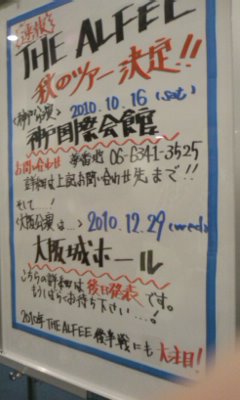 THE ALFEE
秋のツアー決定!!
<神戸公演> 2010.10.16 (sat)
神戸国際会館
お問い合わせ 夢番地 06-6341-3525
詳細は上記お問い合わせ先まで!!
そして...!
<大阪公演は...> 2010.12.29 (wed)
大阪城ホール
こちらの詳細は後日発表です。
もうしばらくお待ち下さい....!
2010年 THE ALFEE 後半戦にも大注目!